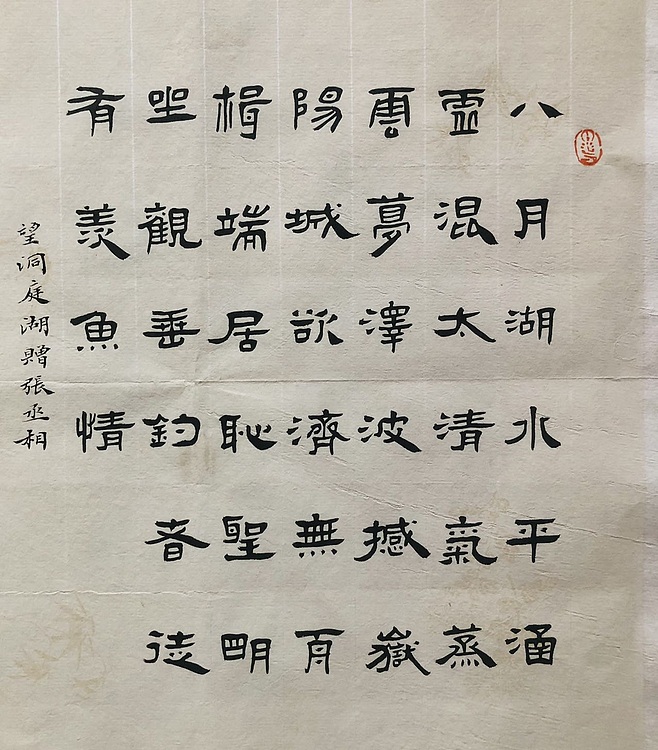 八月湖水平涵
虛混太清氣蒸
雲夢澤波撼嶽
陽城欲濟無舟
楫端居恥聖明
坐觀垂釣者徒
有羨魚情
望洞庭湖贈張丞相